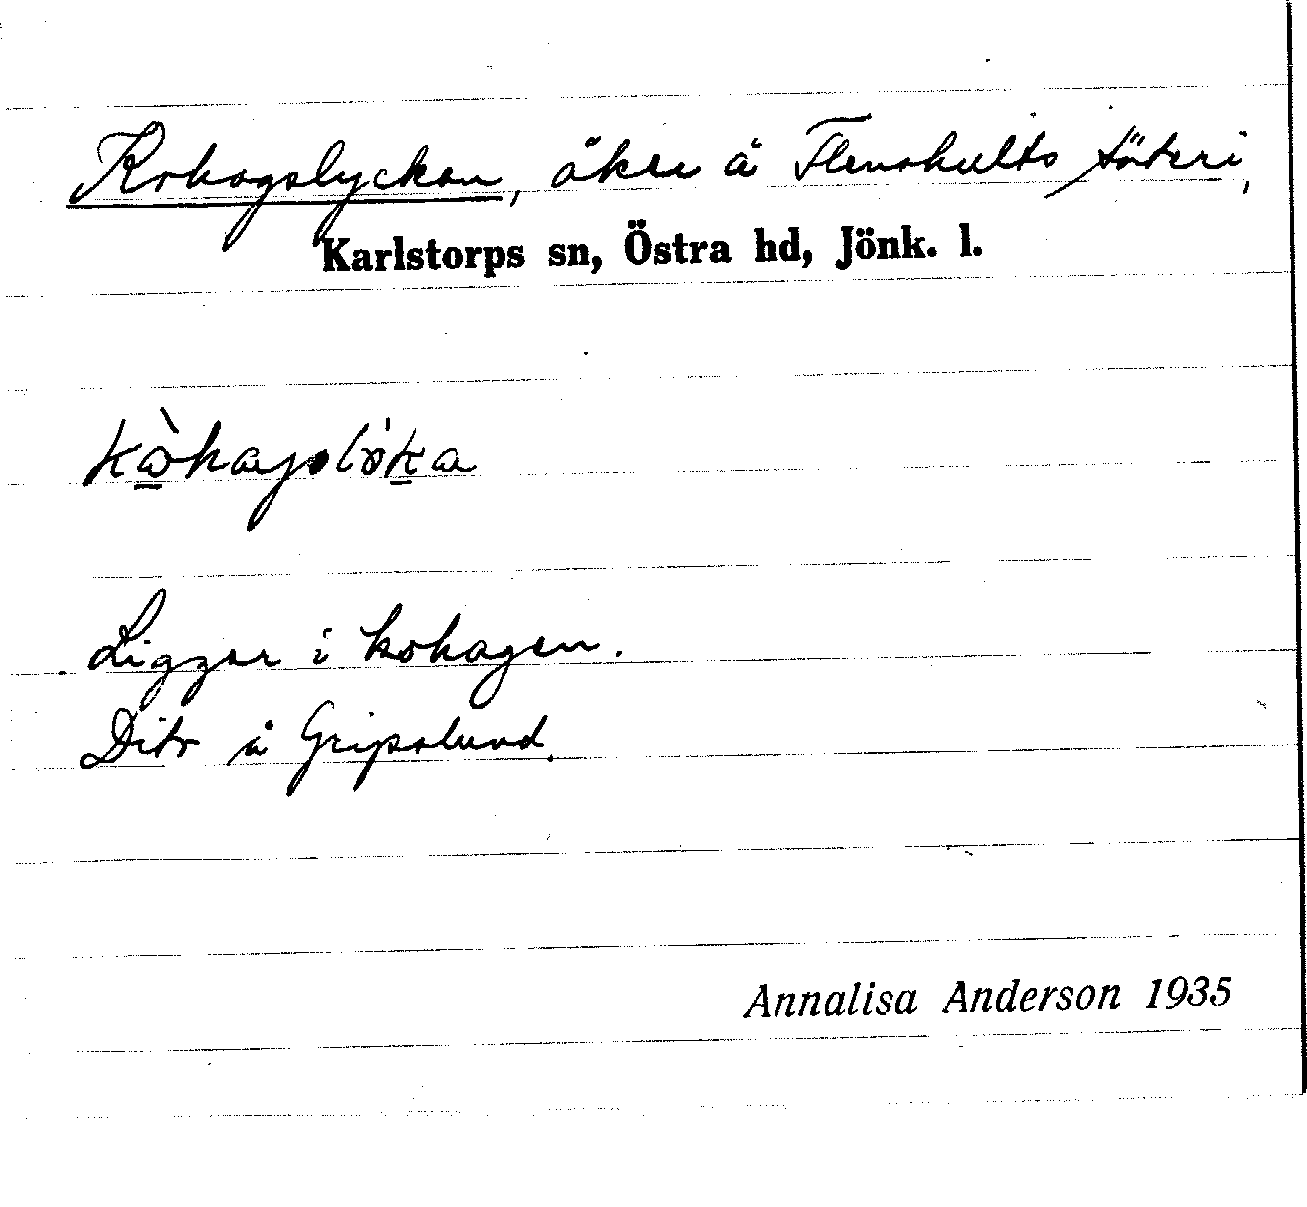 Kohagslyckan, åker å Flenshults säteri,
Karlstorps sn, Östra hd, Jönk. l.
Ligger i kohagen.
Dito å Gripslund.
Annalisa Anderson 1935